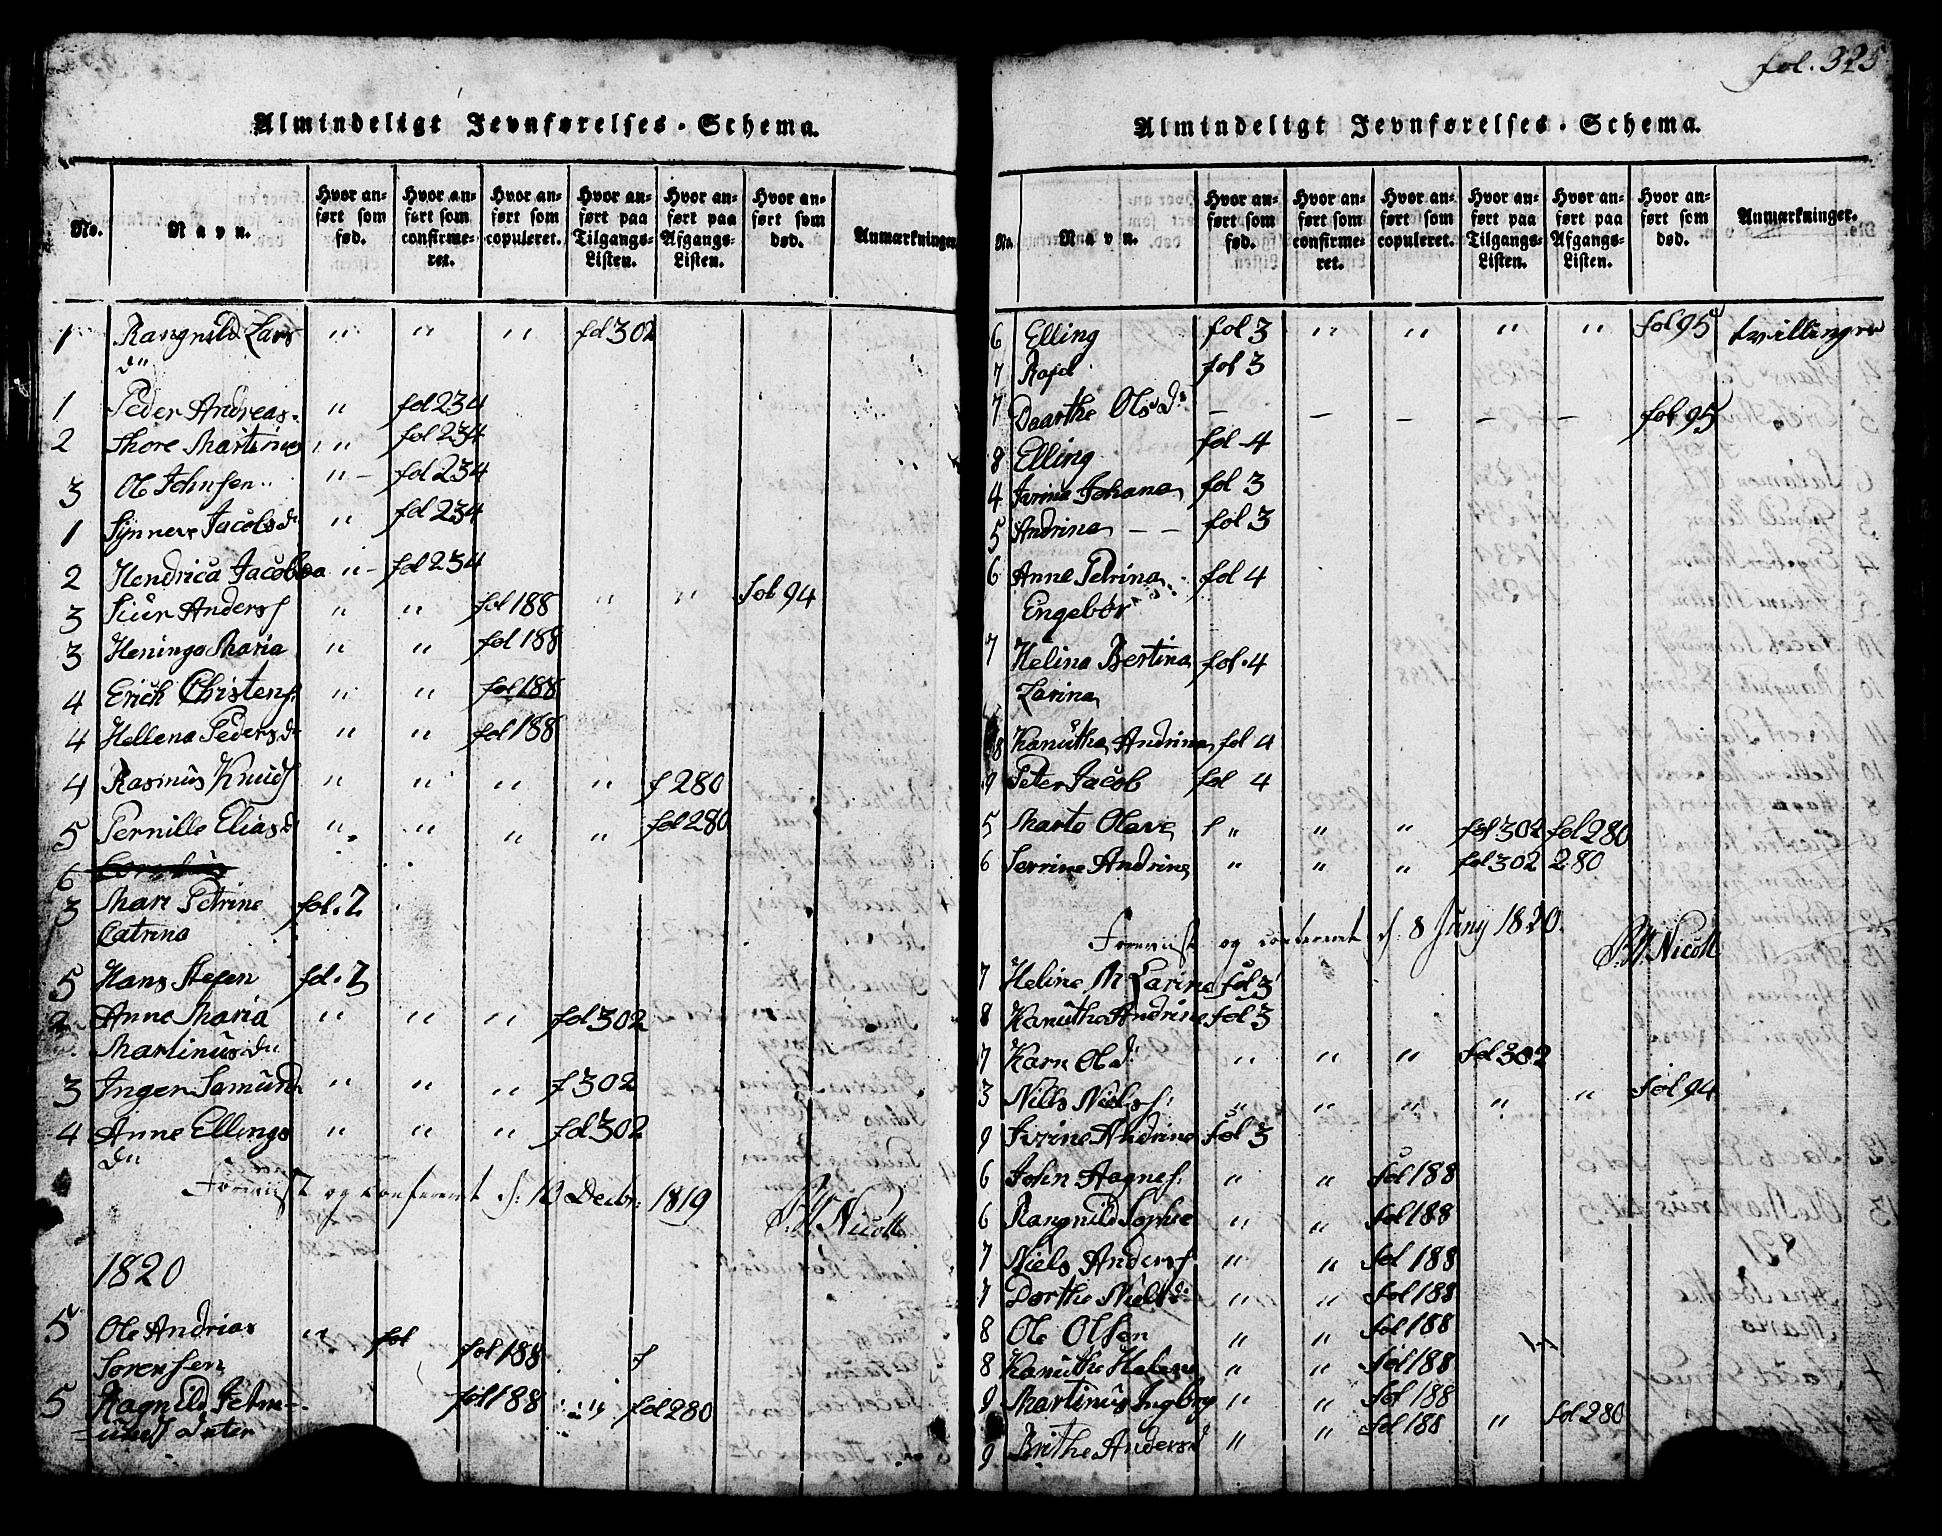 Almindeligt Jevnførelses-Schema.
No. Navn. Hvor anført som fød. Hvor anført som confirmeret. Hvor anført som copuleret. Hvor anført paa Tilgangs-Listen. Hvor anført paa Afgangs-Listen. Hvor anført som død. Anmærkninger
1 Rangnild Lars " " " fol 302
dtr
1 Peder Andreas. " fol 234
2 Thore Martinus " fol 234
3 Ole Johnsen " - fol 234
1 Synneve Jacobsdr " fol 234
2 Hendrica Jacobsda " - fol 234
3 Siur Andersf " " fol 188 " " fol 94
3 Heninga Maria " " fol 188
4 Erich Christensf " " fol 188
4 Hellena Pedersdr " " fol 188
4 Rasmus Knudf " " " " f 280
5 Pernille Eliasdr " " " " fol 280
6
3 Mari Petrine fol. 2
Catrina
5 Hans Stefen fol. 3
2 Anne Maria " " " fol 302
Martinusdtr
3 Inger Samunds " " " f 302
4 Anne Ellings " " " fol 302
dtr
og conferert d. 13 Decbr: 1819 Nicoll
1820
5 Ole Andrias " fol fol 188 f
Sørensen
5 Ragnild fol 188 " fol 280
dater
fol. 325
Almindeligt Jevnførelses-Schema.
No. Navn. Hvor anført som fød. Hvor anført som confirmeret. Hvor anført som copuleret. Hvor anført paa Tilgangs-Listen. Hvor anført paa Afgangs-Listen. Hvor anført som død. Anmarkninger.
6 Elling fol 3 " " " " fol 95 tvillinger
7 Rafel fol 3
7 Daarthe Olsdr - - - - - fol 95
8 Elling fol 4
4 Johana fol 3
5 Andrina - - fol 3
6 Anne Petrina fol 4
Engebør
7 Helina Bertina fol. 4
Larina
8 Kanutha Andrina fol 4
9 Peter Jacob fol 4
5 Marta Olave f " " " fol 302 fol 280
6 Serrine Andrine " " " fol 302 280
og conferert d. 8 Juny 1820.
Nicoll
7 Heline M Larine fol 3
8 Kanutha Andrine fol 3
7 Karn Olsdr " " " fol 302
3 Nills Nielsf: " " " " " fol 94
9 Sirine Andrine fol 3
6 John Aagnef. " " fol 188
6 Rangnild Sophie " " fol 188
7 Niels Andersf. " " fol 188
7 Dorthe Nielsdr " " fol 188
8 Ole Olsen " " fol 188
8 Kanuthe Helene " " fol 188
9 Martinus Ingbrg " " fol 188
9 Brithe Andersd " " fol 188 " fol 280